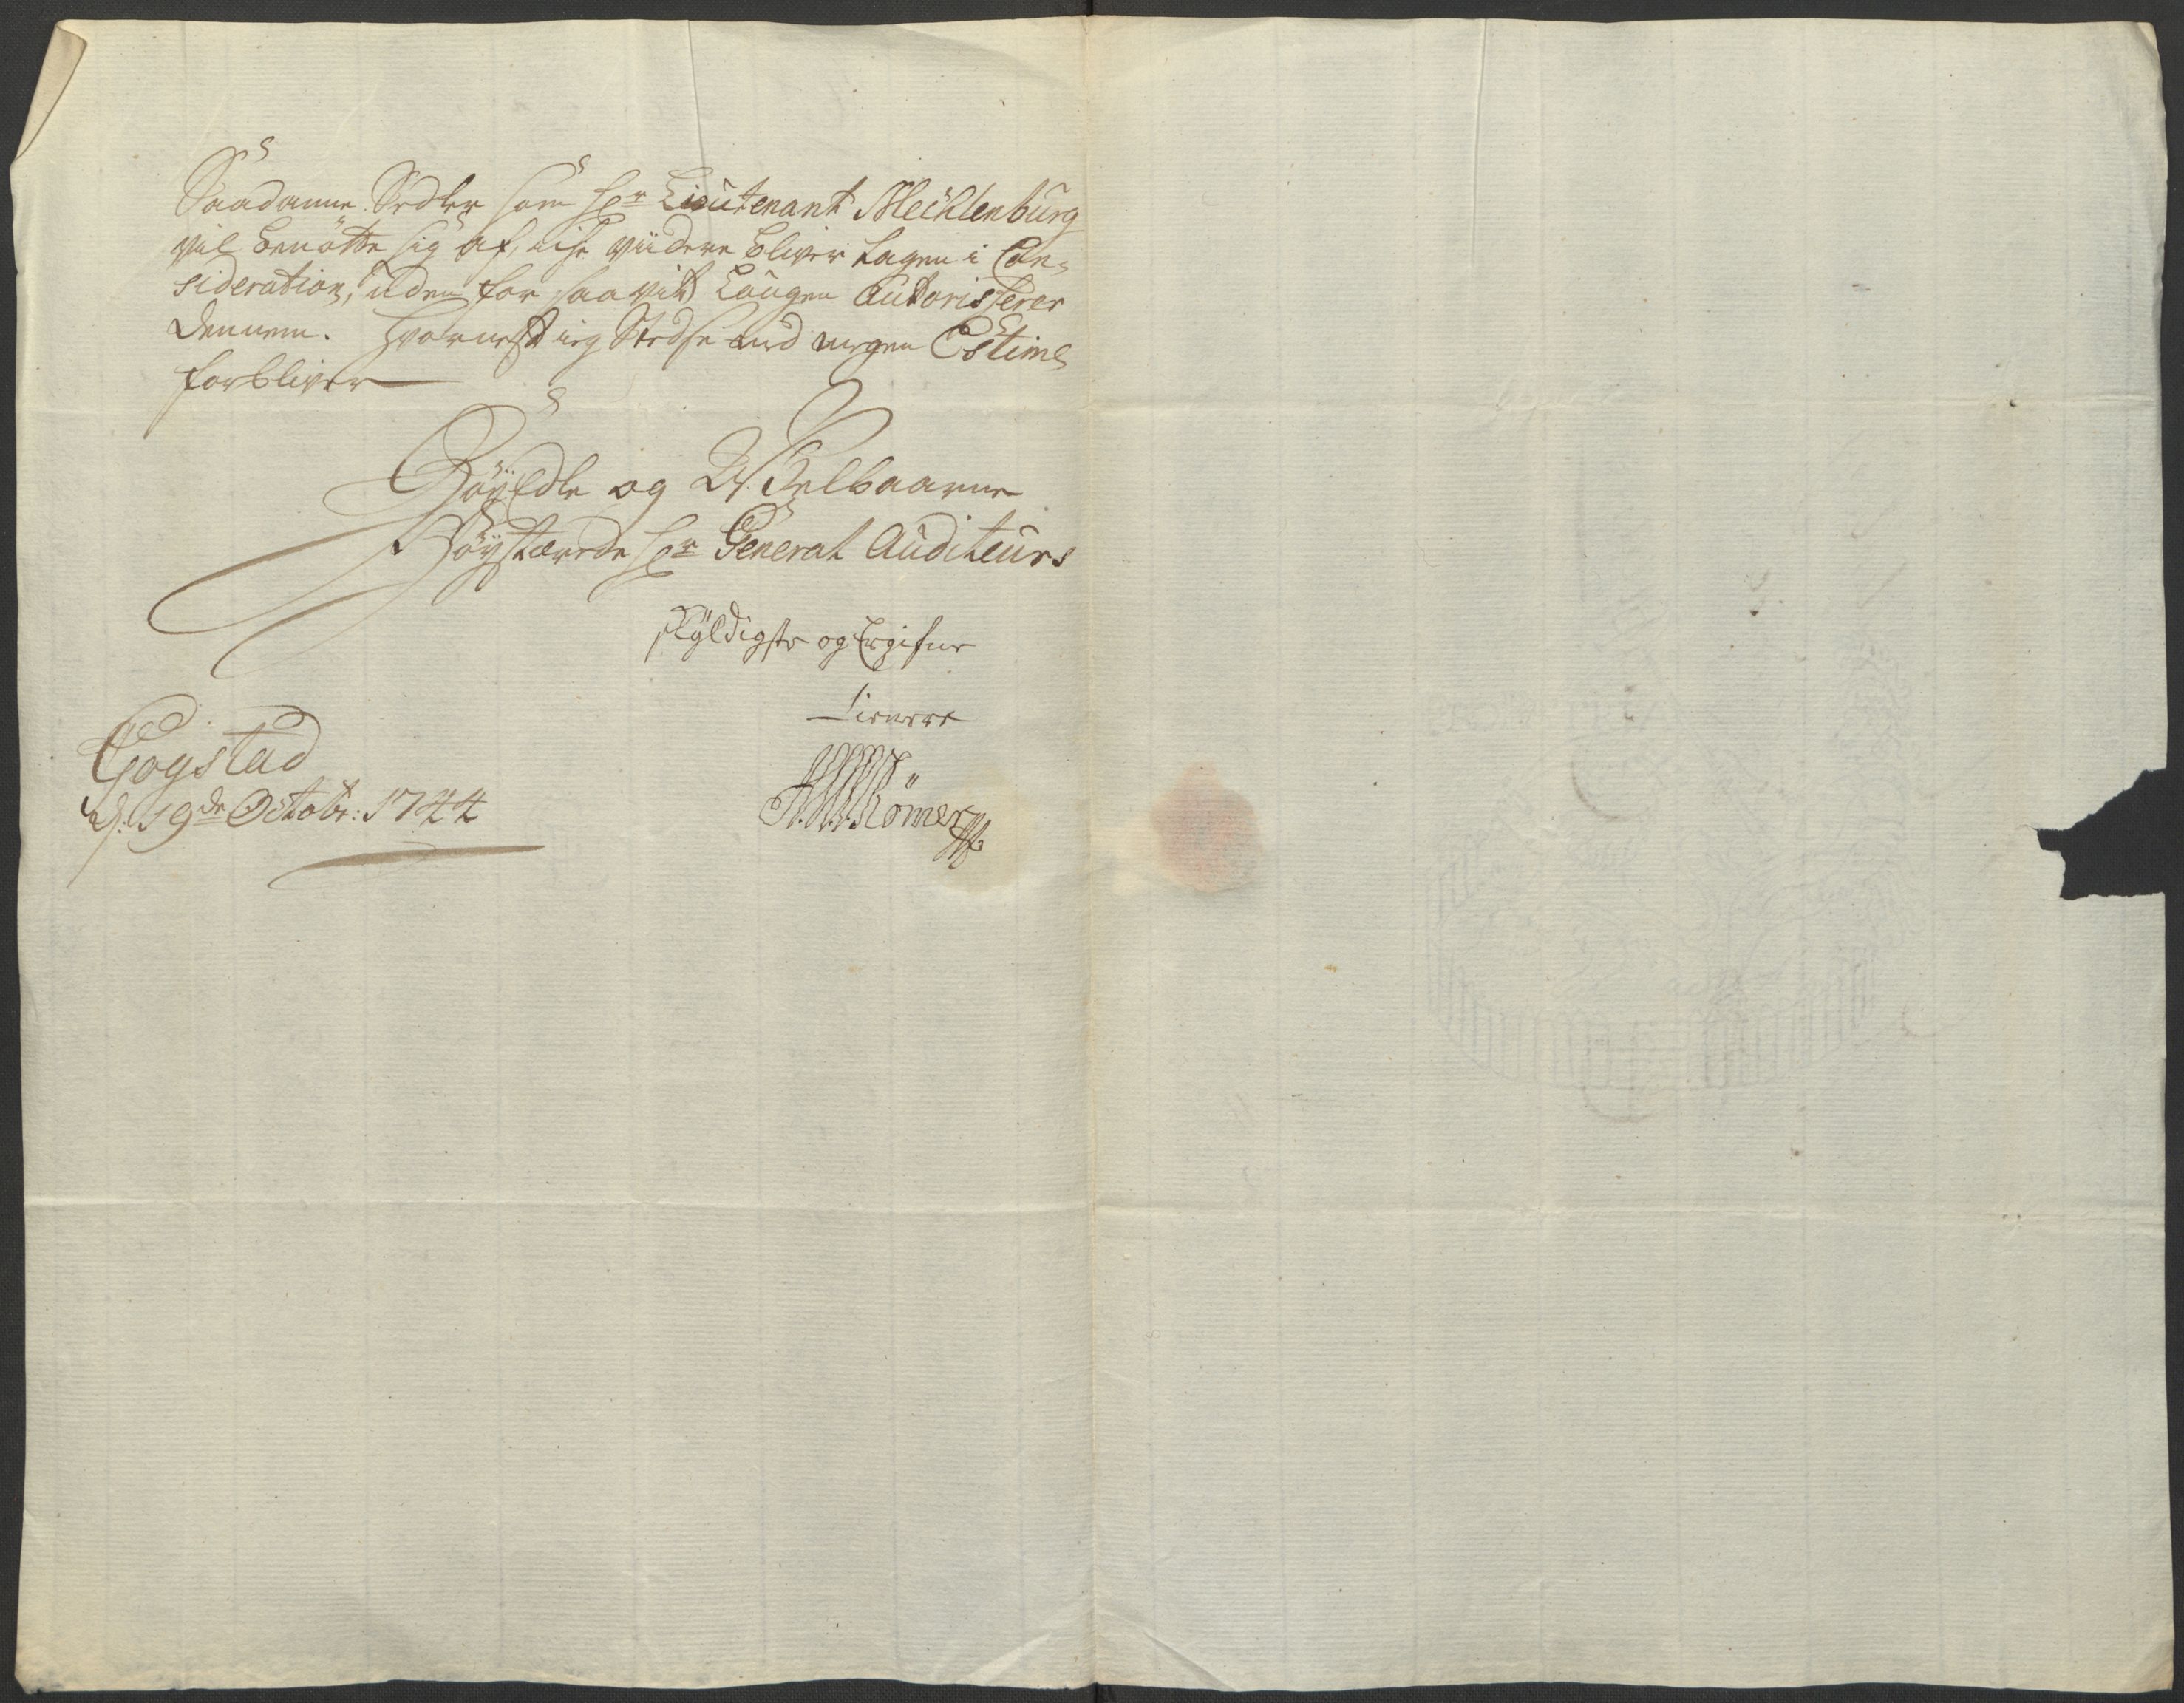 Saadanne Sedler som hr Lieutenant Mechlenburg
vil benötte sig af, icke viidere bliver tagen i Con-
sideration, uden for saavit Laugen Autoriserer
dennem. Hvornest ieg Stedse med megen Estime
forbliver
HöyEdle og Velbaarne
Höystærede hr General Auditeurs
skÿldigste og Ergifne
tienere
Römer
Gogstad
d: 19de Octobr: 1744